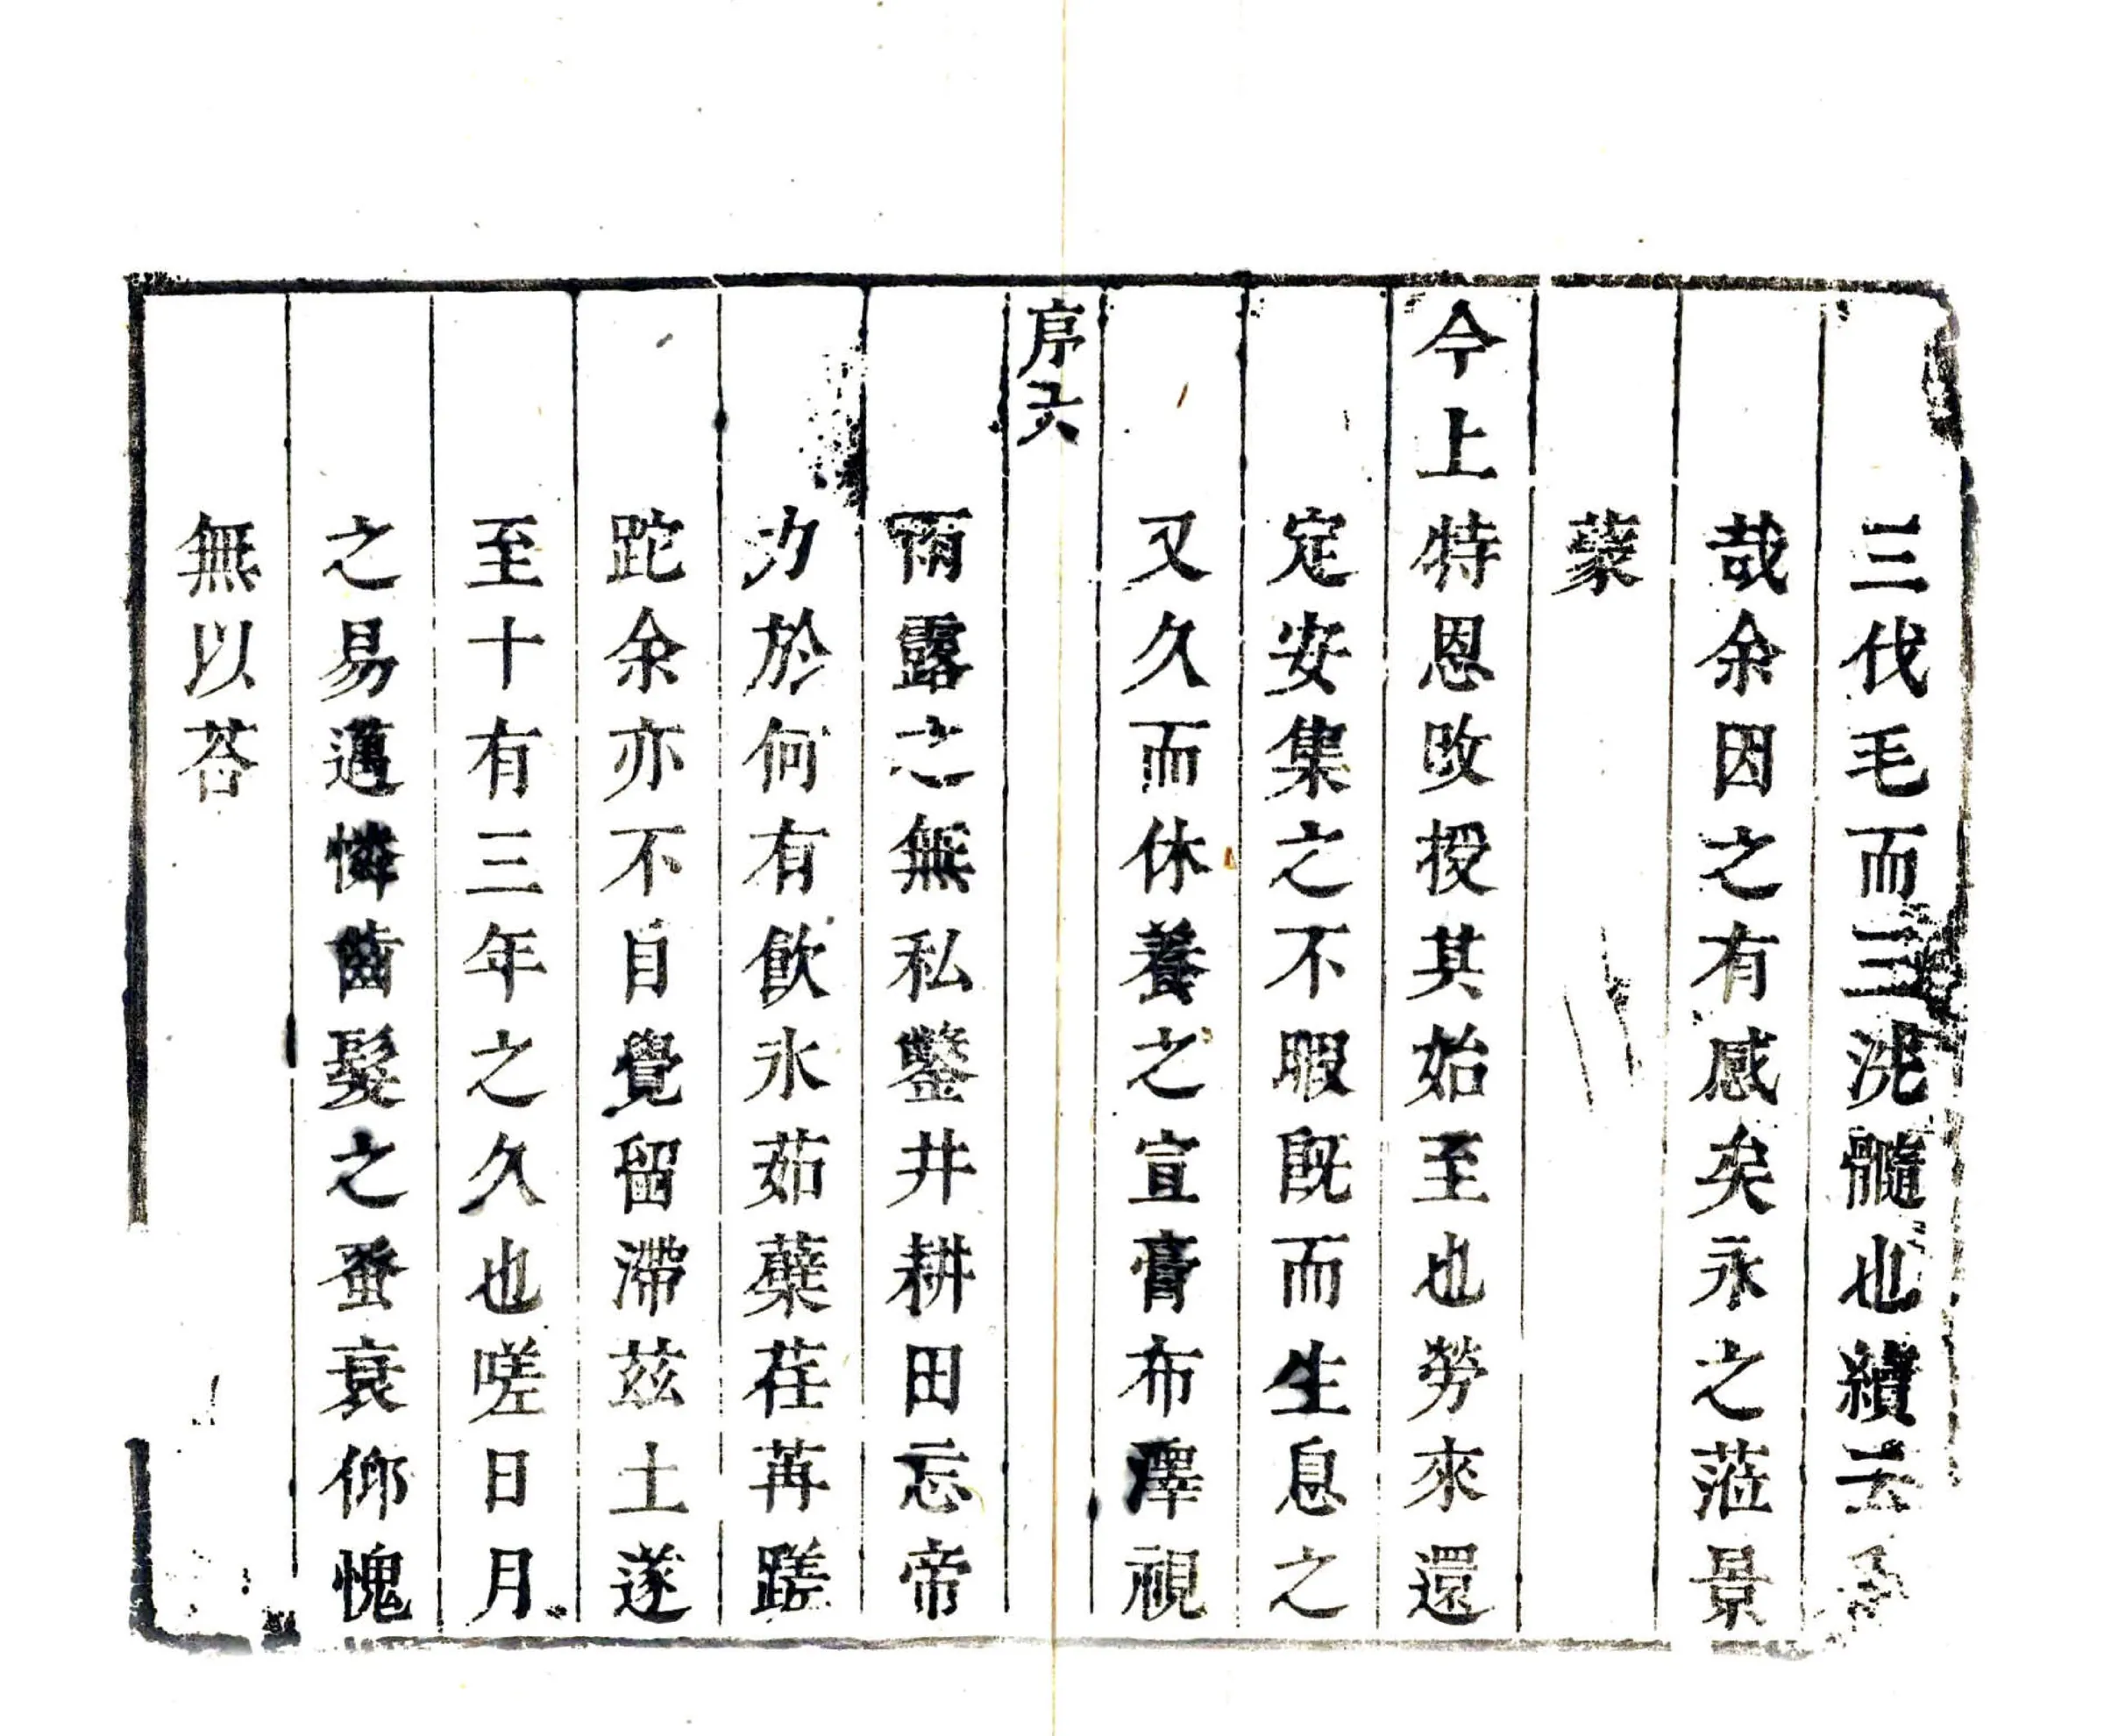 三伐毛而三洗髓也續云
哉余因之有感矣永之蒞景
蒙
今上特恩改授其始至也勞來還
定安集之不暇旣而生息之
又久而休養之宣膏布澤視
序六
雨露之無私鑿井耕田忘帝
力於何有飮氷茹蘗荏苒蹉
跎余亦不自覺留滯茲土遂
至十有三年之久也嗟日月
之易邁憐齒髮之蚤衰仰愧
無以荅